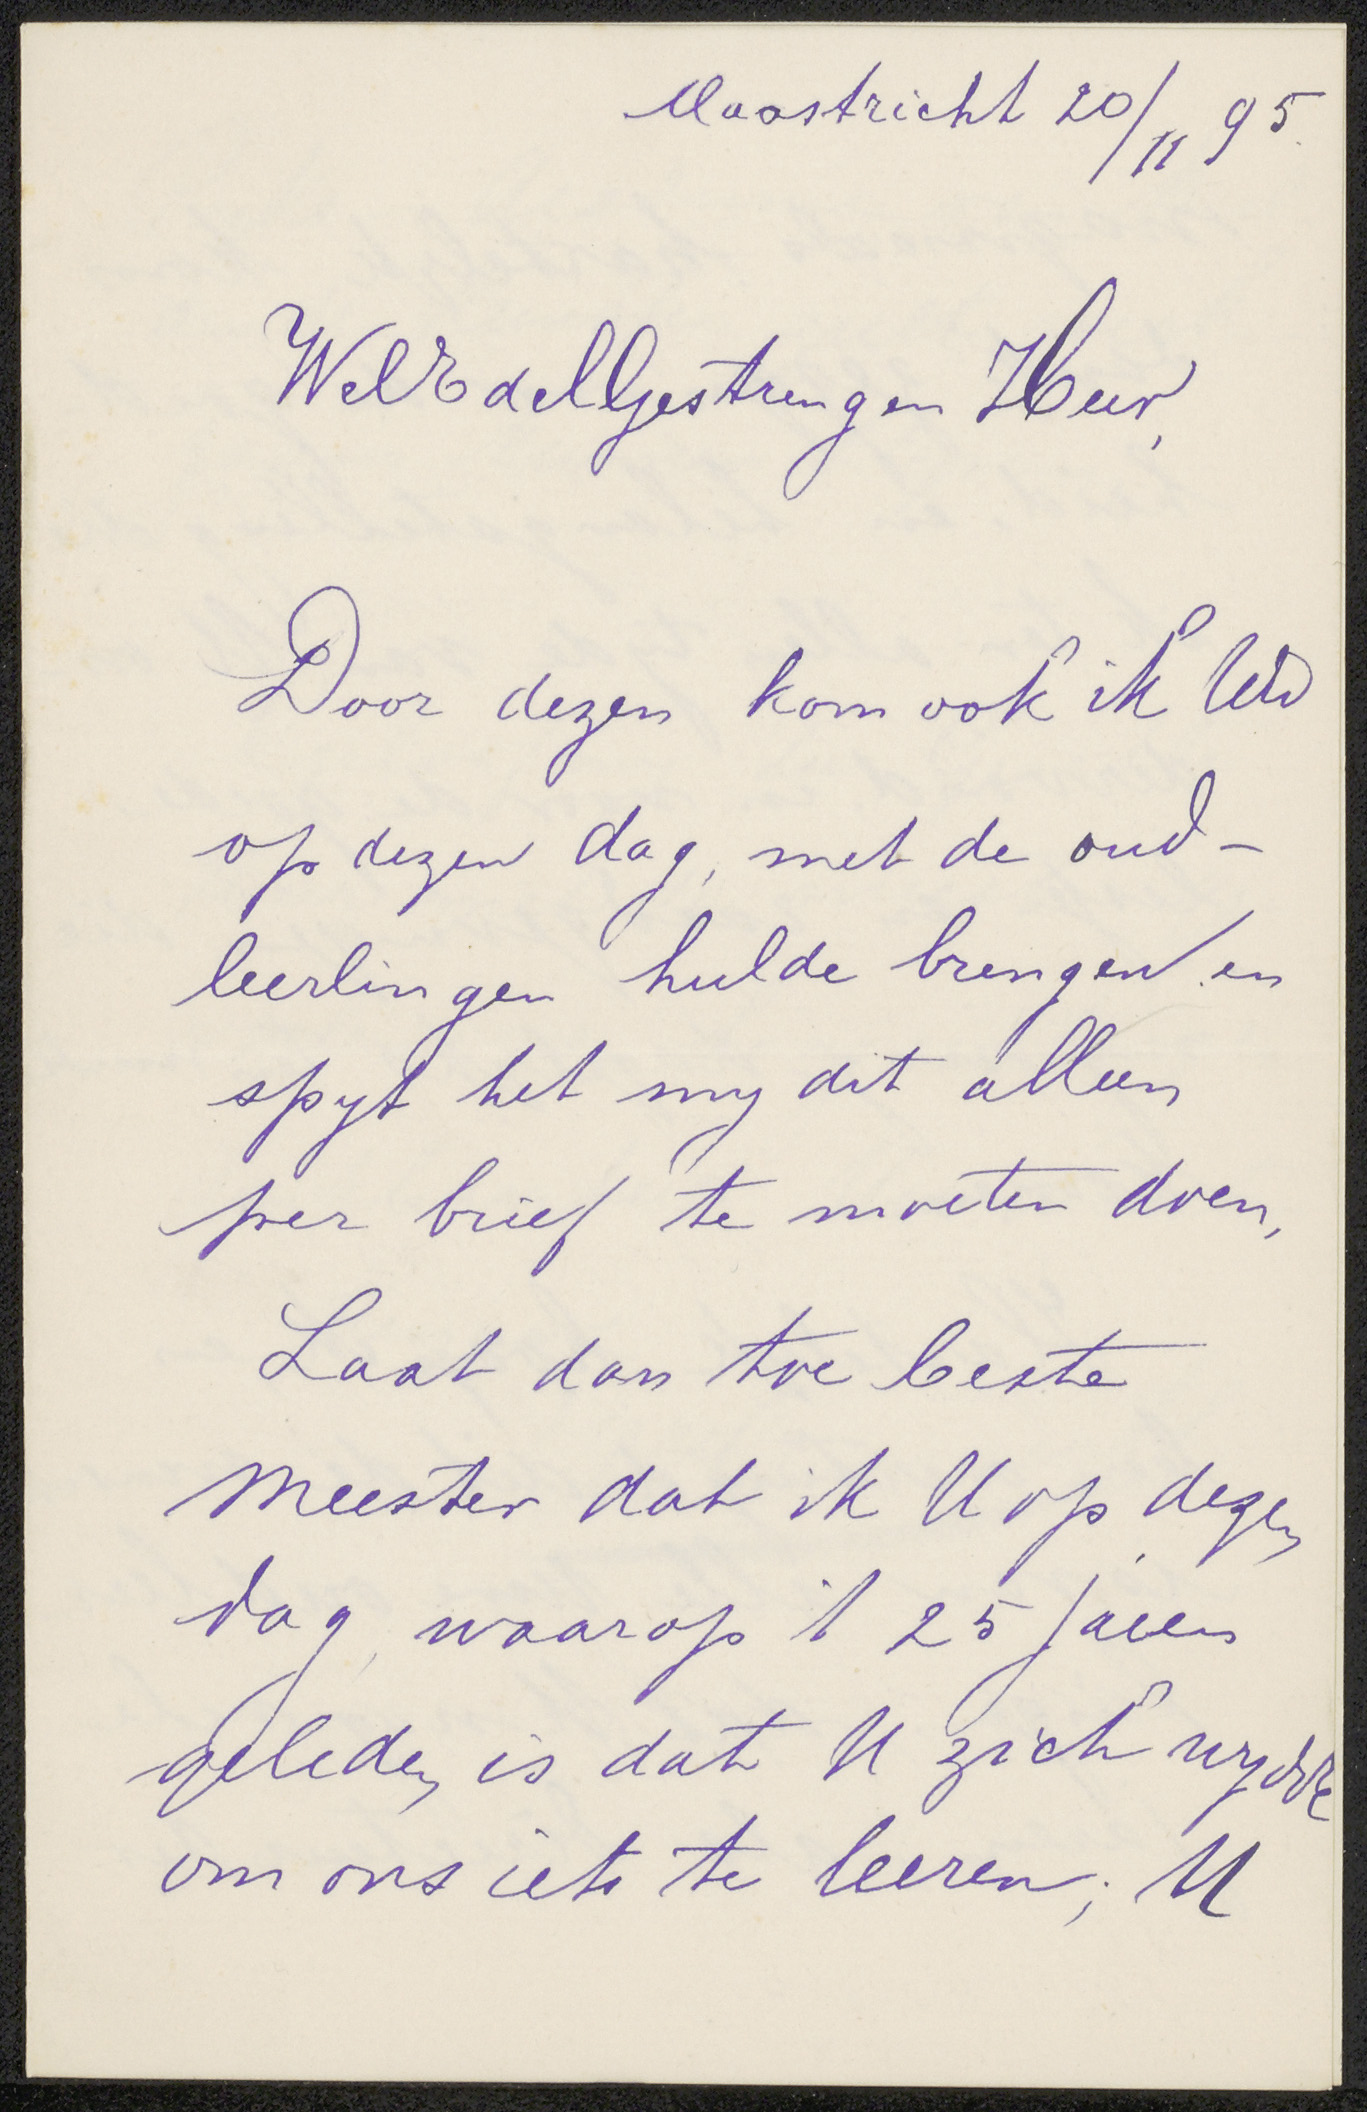 Maastricht 20/11 95.
WelEdelGestrengen Heer,
Door dezen kom ook ik Uw
op dezen dag, met de oud-
leerlingen hulde brengen en
spyt het my dit alleen
per brief te moeten doen,
Laat dan toe beste
Meester dat ik U op dezen
dag, waarop 't 25 jaren
geleden is dat U zich wydde
om ons iets te leeren; U